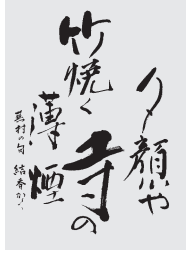 夕顔や
竹焼く寺の
薄煙
蕪村の句 結香